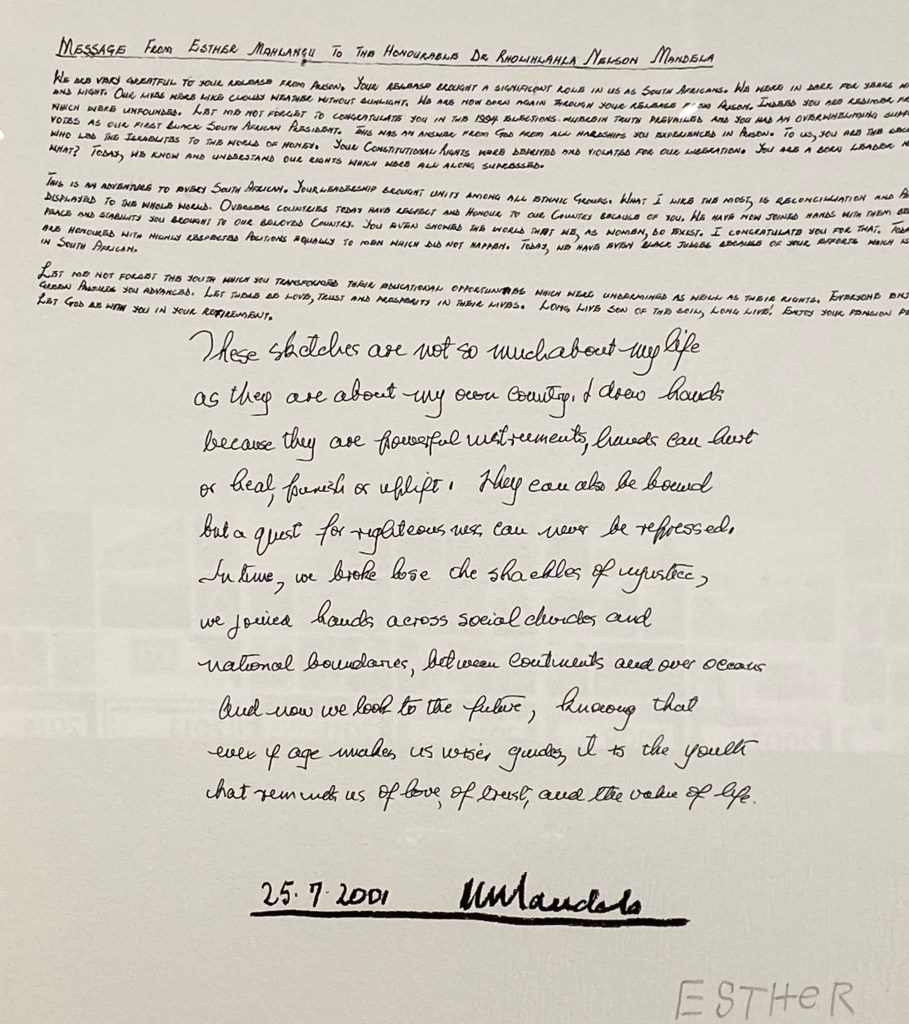 MESSAGE FROM ESTHER MAHLANGU TO THE HONOURABLE DR RHOLIHLAHLA NELSON MANDELA
WE ARE VERY GREATFUL TO YOUR RELEASE FROM PRISON. YOUR RELEASE BROUGHT A SIGNIFICANT ROLE IN US AS SOUTH AFRICANS. WE WERE IN DARK FOR YEARS
AND NIGHT. OUR LIVES WERE LIKE CLOUDY WEATHER WITHOUT SUNLIGHT. WE ARE NOW BORN AGAIN THROUGH YOUR RELEASE FROM PRISON. INDEED YOU ARE REDIMER
WHICH WERE UNFOUNDED. LET ME NOT FORGET TO CONGRATULATE YOU IN THE 1994 ELECTIONS. WHEREIN TRUTH PREVAILED AND YOU HAD AN OVERWHELMING
VOTES AS OUR FIRST BLACK SOUTH AFRICAN PRESIDENT. THIS WAS AN ANSWER FROM GOD FROM ALL HARDSHIPS YOU EXPERIENCED IN PRISON. TO US, YOU ARE THE
WHO LED THE ISRAELITES TO THE WORLD OF HONEY. YOUR CONSTITUTIONAL RIGHTS WERE DEPRIVED AND VIOLATED FOR OUR LIBERATION. YOU ARE A BORN LEADER
WHAT? TODAY, WE KNOW AND UNDERSTAND OUR RIGHTS WHICH WERE ALL ALONG SUPRESSED.
THIS IS AN ADVENTURE TO EVERY SOUTH AFRICAN. YOUR LEADERSHIP BROUGHT UNITY AMONG ALL ETHNIC GROUPS. WHAT I LIKE THE MOST, IS RECONCILIATION AND
DISPLAYED TO THE WHOLE WORLD. OVERSEAS COUNTRIES TODAY HAVE RESPECT AND HONOUR TO OUR COUNTRY BECAUSE OF YOU. WE HAVE NOW JOINED HANDS WITH THEM
PEACE AND STABILITY YOU BROUGHT TO OUR BELOVED COUNTRY. YOU EVEN SHOWED THE WORLD THAT WE, AS WOMEN, DO EXIST. I CONGRATULATE YOU FOR THAT.
ARE HONOURED WITH HIGHLY RESPECTED POSITIONS EQUALLY TO MEN WHICH DID NOT HAPPEN. TODAY, WE HAVE EVEN BLACK JUDGES BECAUSE OF YOUR EFFORTS WHICH
IN SOUTH AFRICAN.
LET ME NOT FORGET THE YOUTH WHICH YOU TRANSFORMED THEIR EDUCATIONAL OPPORTUNITIES WHICH WERE UNDERMINED AS WELL AS THEIR RIGHTS. EVERYONE
GREEN PASTURES YOU ADVANCED. LET THERE BE LOVE, TRUST AND PROSPERITY IN THEIR LIVES. LONG LIVE SON OF THE SOIL, LONG LIVE! ENJOY YOUR PENSION
LET GOD BE WITH YOU IN YOUR RETIREMENT.
These sketches are not so much about my life
as they are about my own country. I drew hands
because they are powerful instruments, hands can hurt
or heal, punish or uplift. They can also be bound
but a quest for righteousness can never be repressed.
In time, we broke lose the shackles of injustice,
we joined hands across social divides and
national boundaries, between continents and over oceans
And now we look to the future, knowing that
even if age makes us wiser guides, it is the youth
that reminds us of love, of trust, and the value of life.
25.7.2001 NMandela
ESTHER